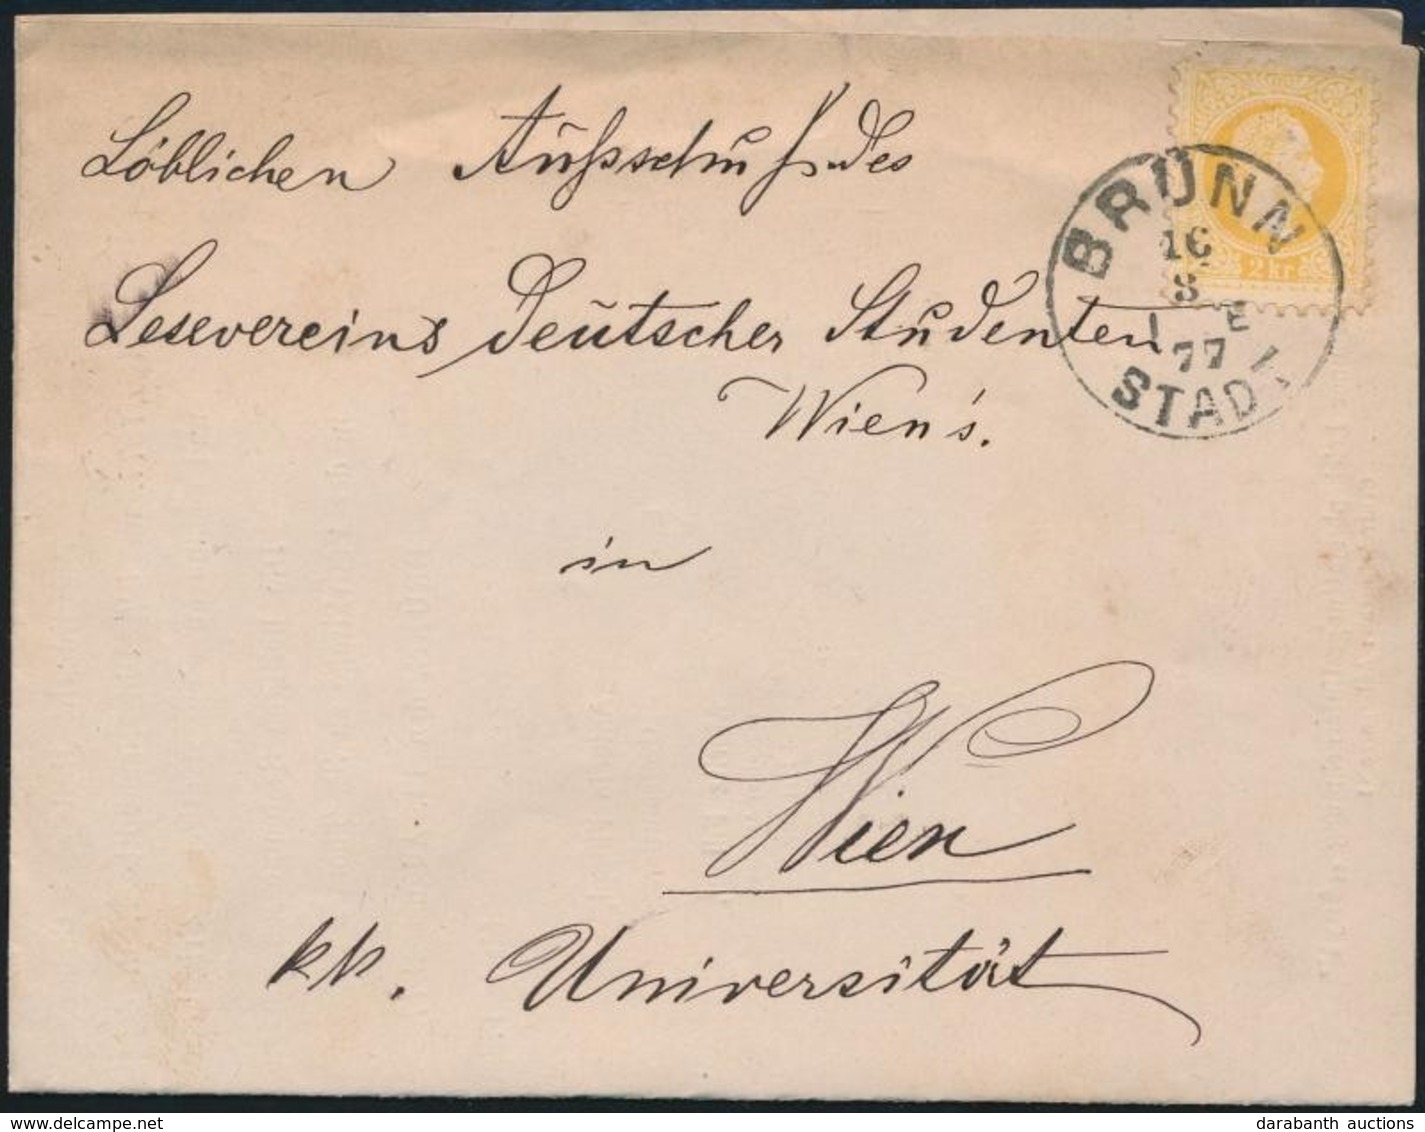 Löblichen Außschuß des
Lesevereins Deutscher Studenten
Wien's.
in
Wien
kk. Universität
2 kr
BRÜNN
16
8
1 E
77
STADT
darabanth auctions